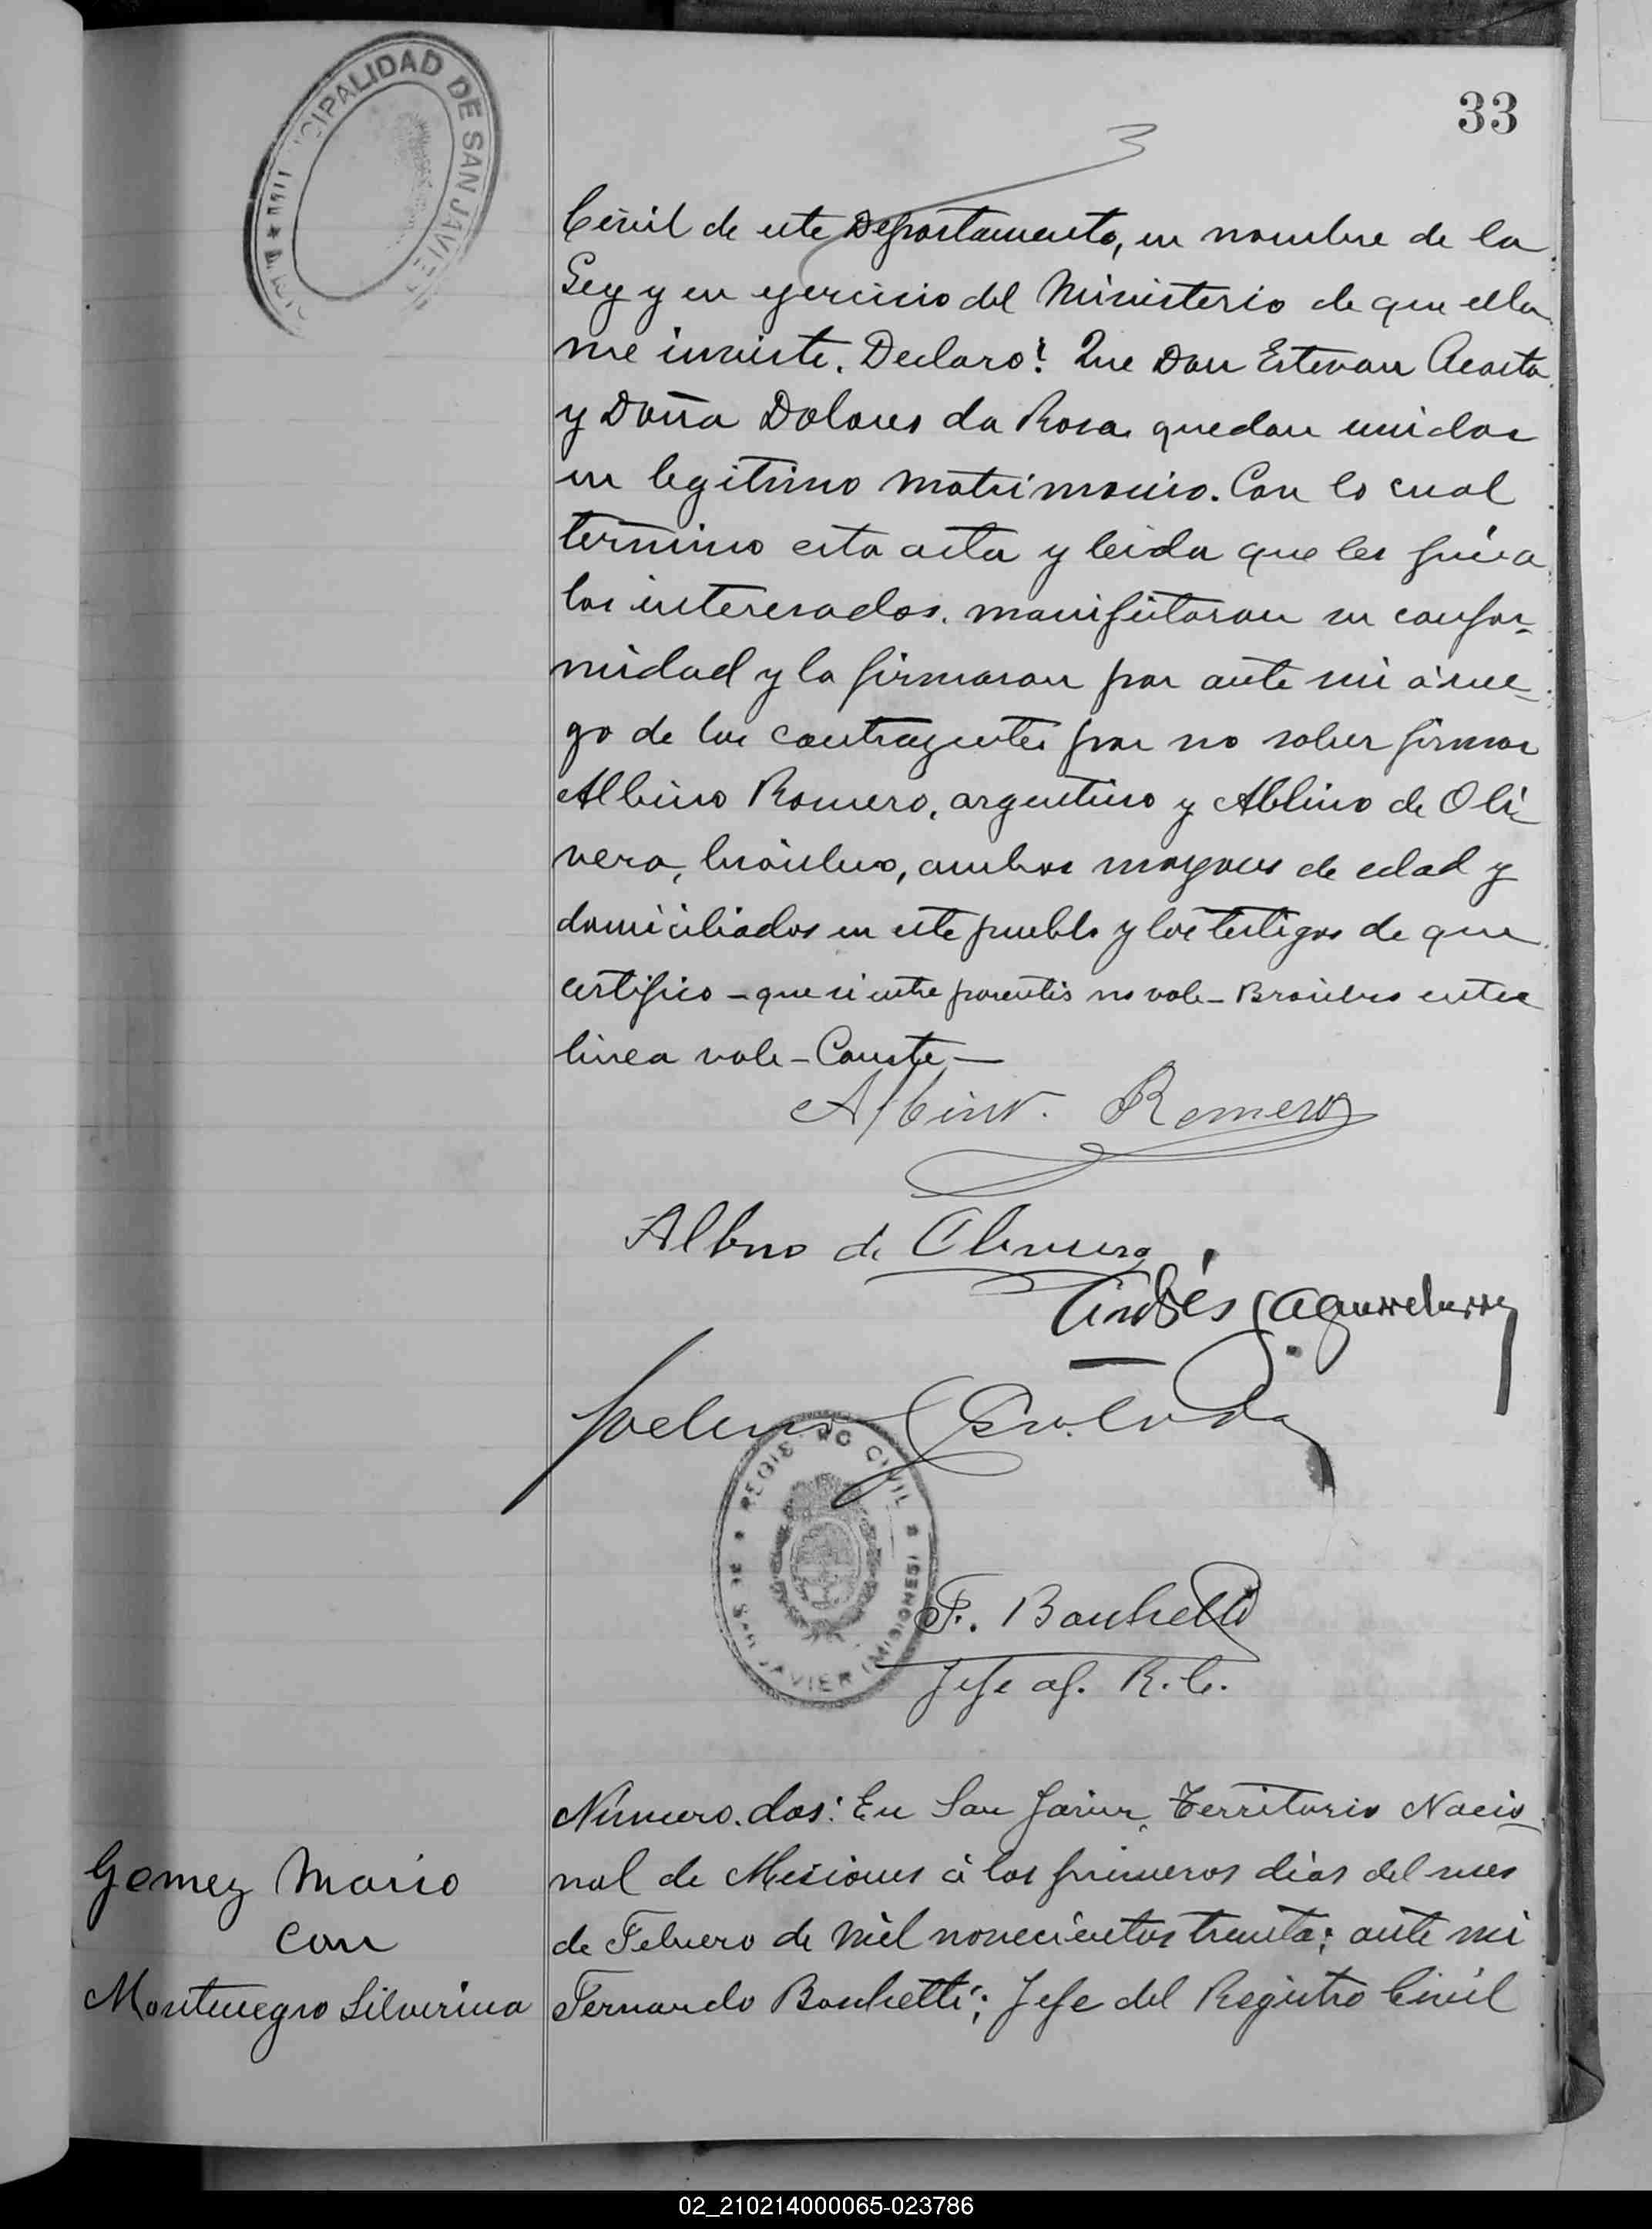 33
3
MUNICIPALIDAD DE SAN JAVIER
Civil de este Departamento, en nombre de la
Ley y en ejercicio del Ministerio de que ella
me inviste. Declaro: Que Don Estevan Acosta
y Doña Dolores da Rosa quedan unidos
en legitimo matrimonio. Con lo cual
termino esta acta y leida que les fuera
los interesados, manifestaron su confor-
midad y la firmaron por ante mi á rue-
go de los contrayentes por no saber firmar
Albino Romero, argentino y Albino de Oli-
vera, brasilero, ambos mayores de edad y
domiciliados en este pueblo y los testigos de que
certifico - que si entre parentis no vale - Brasilero entre
linea vale - Conste -
Albino Romero
Albino de Olivera
Andrés
REGISTRO CIVIL DE SAN JAVIER (MISIONES)
F. Banchetti
Jefe of. R. C.
Gomez Mario
con
Montenegro Silverina
Número dos: En San Javier, Territorio Nacio-
nal de Misiones á los primeros dias del mes
de Febrero de mil novecientos treinta: ante mi
Fernando Banchetti; Jefe del Registro Civil
02_210214000065-023786